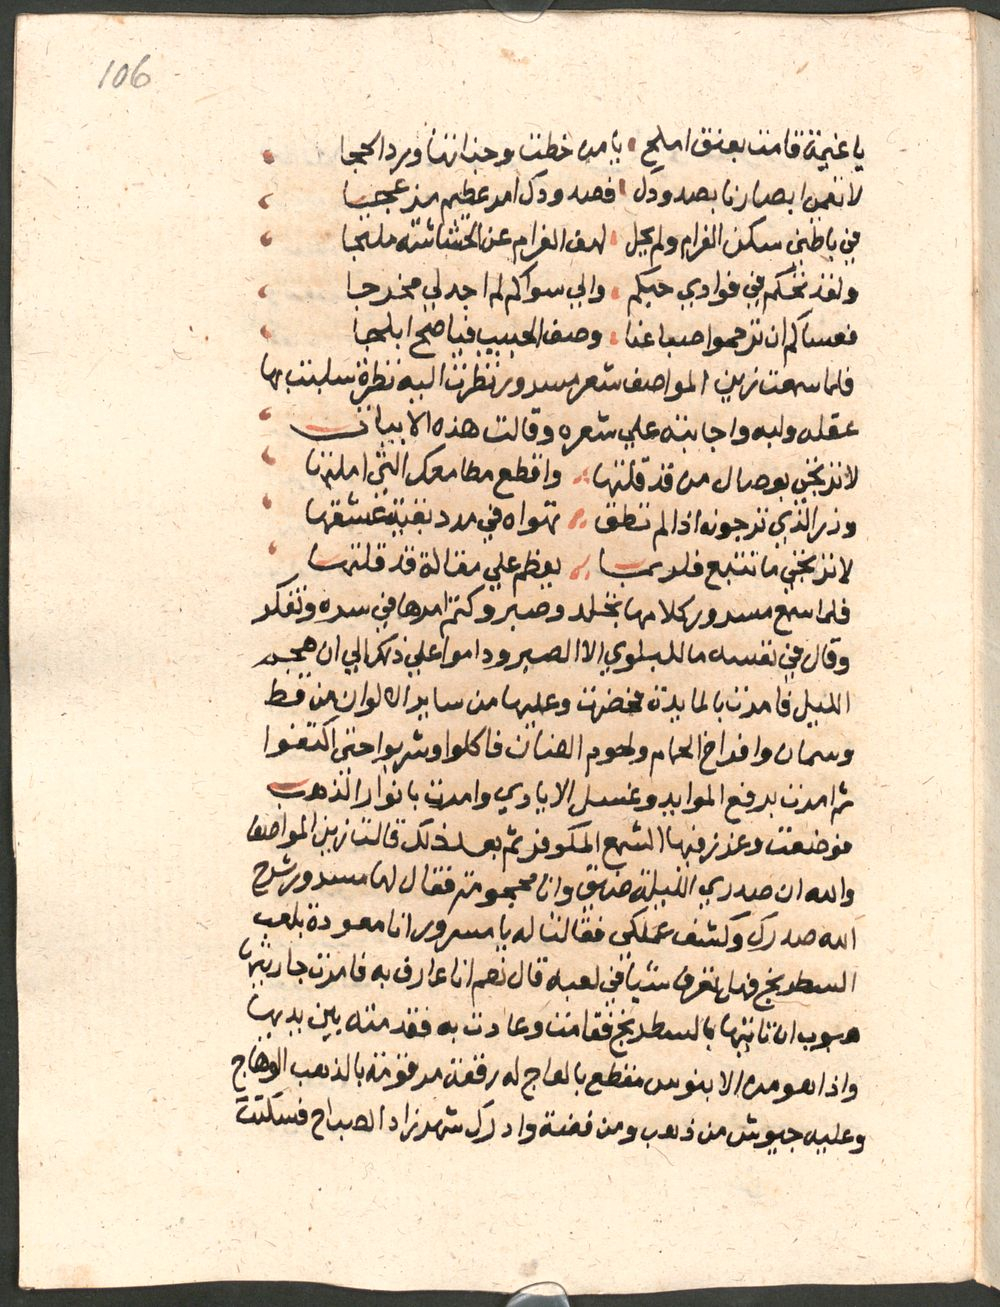 106
يا غنيمة قامت بعنق املح يا من خطت وجناتها ورد الحجا
لا تفتن ابصارنا بصدودك فصدودك امر عظيم مزعجا
في باطني سكن الغرام ولم يحل لهف الغرام عن الحشاشته ملجا
ولقد تحكم في فوادي حبكم والي سواكم لم اجد لي مخرجا
فعساكم ان ترحموا صبا عنا وصف الحبيب فيا صبح ابلجا
فلما سمعت زين المواصف شعر مسرور نظرت اليه نظرة سلبت بها
عقله ولبه واجابته علي شعره وقالت هذه الابيات
لا ترتجي بوصال من قد قلتها واقطع مطامعك التي املتها
وذر الذي ترجوه اذا لم تطق تهواه في مرد بغية عشقها
لا ترتجي ما تتبع فلربما يعظم علي مقالة قد قلتها
فلما سمع مسرور كلامها تجلد وصبر وكتم امرها في سره وتفكر
وقال في نفسه ما للبلوي الا الصبر وداموا علي ذلك الي ان هجم
الليل فامرت بالمايدة فحضرت وعليها من ساير الالوان من قط
وسمان وافراخ الحمام ولحوم الضان فاكلوا وشربوا حتي اكتفوا
ثم امرت برفع الموايد وغسل الايادي وامرت بانوار الذهب
فوضعت وغرز فيها الشمع المكوفر ثم بعد ذلك قالت زين المواصف
والله ان صدري الليلة ضيق وانا محمومة فقال لها مسرور شرح
الله صدرك وكشف عملكي فقالت له يا مسرور انا معودة بلعب
السطرنج فهل تعرف شيا في لعبه قال نعم انا عارف به فامرت جاريتها
هبوب ان تاتيها بالسطرنج فقامت وعادت به فقدمته بين يديها
واذا هو من الابنوس مقطع بالعاج له رقعة مرقومة بالذهب الوهاج
وعليه جيوش من ذهب ومن فضة وادرك شهرزاد الصباح فسكتت